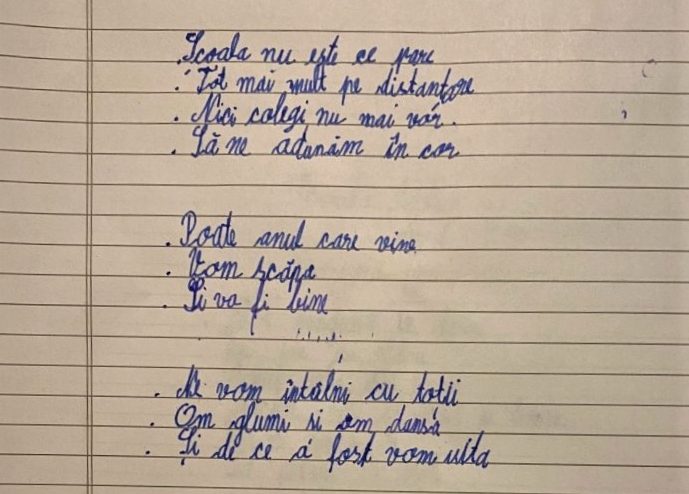 .Școala nu este ce pare
. Tot mai mult pe distanțare
. Nici colegi nu mai vor.
. Să ne adunăm în cor
. Poate anul care vine
. Vom scăpa
. Și va fi bine
.....
. Ne vom întâlni cu totii
. Om glumi si om dansa
. Și de ce a fost vom uita